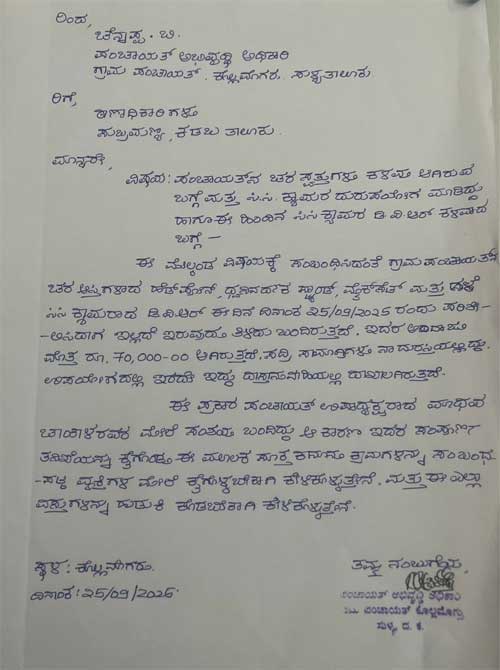 ರಿಂದ,
ಚೆನ್ನಪ್ಪ . ಬಿ.
ಪಂಚಾಯತ್ ಅಭಿವೃದ್ಧಿ ಅಧಿಕಾರಿ
ಗ್ರಾಮ ಪಂಚಾಯತ್. ಕೊಲ್ಲಮೊಗರು. ಸುಳ್ಯತಾಲೂಕು.
ರಿಗೆ,
ಠಾಣಾಧಿಕಾರಿಗಳು
ಸುಬ್ರಮಣ್ಯ, ಕಡಬ ತಾಲೂಕು.
ಮಾನ್ಯರೇ,
ವಿಷಯ: ಪಂಚಾಯತ್‌ನ ಚರ ಸ್ವತ್ತುಗಳು ಕಳವು ಆಗಿರುವ
ಬಗ್ಗೆ ಮತ್ತು ಸಿ.ಸಿ. ಕ್ಯಾಮರ ದುರುಪಯೋಗ ಮಾಡಿದ್ದು
ಹಾಗೂ ಈ ಹಿಂದಿನ ಸಿಸಿ ಕ್ಯಾಮರ ಡಿ.ವಿ.ಆರ್ ಕಳವಾದ
ಬಗ್ಗೆ –
ಈ ಮೇಲ್ಕಂಡ ವಿಷಯಕ್ಕೆ ಸಂಬಂಧಿಸಿದಂತೆ ಗ್ರಾಮ ಪಂಚಾಯತ್‌ನ
ಚರ ಆಸ್ತಿಗಳಾದ ಹೆಡ್‌ಫೋನ್, ಧ್ವನಿವರ್ದಕ ಸ್ಟ್ಯಾಂಡ್, ಮೈಕ್‌ಸೆಟ್ ಮತ್ತು ಹಳೆ
ಸಿಸಿ ಕ್ಯಾಮರಾದ ಡಿ.ವಿ.ಆರ್ ಈ ದಿನ ದಿನಾಂಕ 25/09/2025 ರಂದು ಪರಿಶೀ-
-ಲಿಸಿದಾಗ ಇಲ್ಲದೆ ಇರುವುದು ತಿಳಿದು ಬಂದಿರುತ್ತದೆ. ಇದರ ಅಂದಾಜು
ಮೊತ್ತ ರೂ. 70,000-00 ಆಗಿರುತ್ತದೆ. ಸದ್ರಿ ಸಾಮಾಗ್ರಿಗಳು ನಾದುರಸ್ತಿಯಲ್ಲಿದ್ದು.
ಉಪಯೋಗದಲ್ಲಿ ಇರದೇ ಇದ್ದು ದಾಸ್ತಾನುವಹಿಯಲ್ಲಿ ದಾಖಲಾಗಿರುತ್ತದೆ.
ಈ ಪ್ರಕಾರ ಪಂಚಾಯತ್ ಉಪಾಧ್ಯಕ್ಷರಾದ ಮಾಧವ
ಚಾಂತಾಳರವರ ಮೇಲೆ ಸಂಶಯ ಬಂದಿದ್ದು ಆ ಕಾರಣ ಇದರ ಸಂಪೂರ್ಣ
ತನಿಖೆಯನ್ನು ಕೈಗೊಂಡು ಈ ಮೂಲಕ ಸೂಕ್ತ ಕಾನೂನು ಕ್ರಮಗಳನ್ನು ಸಂಬಂಧ-
-ಪಟ್ಟ ವ್ಯಕ್ತಿಗಳ ಮೇಲೆ ಕೈಗೊಳ್ಳಬೇಕಾಗಿ ಕೇಳಿಕೊಳ್ಳುತ್ತೇನೆ. ಮತ್ತು ಈ ಎಲ್ಲಾ
ವಸ್ತುಗಳನ್ನು ಹುಡುಕಿ ಕೊಡಬೇಕಾಗಿ ಕೇಳಿಕೊಳ್ಳುತ್ತೇನೆ.
ಸ್ಥಳ : ಕೊಲ್ಲಮೊಗರು.
ತಮ್ಮ ನಂಬುಗೆಯ,
ದಿನಾಂಕ : 25/09/2025
ಪಂಚಾಯತ್ ಅಭಿವೃದ್ಧಿ ಅಧಿಕಾರಿ
ಪಂಚಾಯತ್ ಕೊಲ್ಲಮೊಗ್ರು
ಸುಳ್ಯ ದ. ಕ.